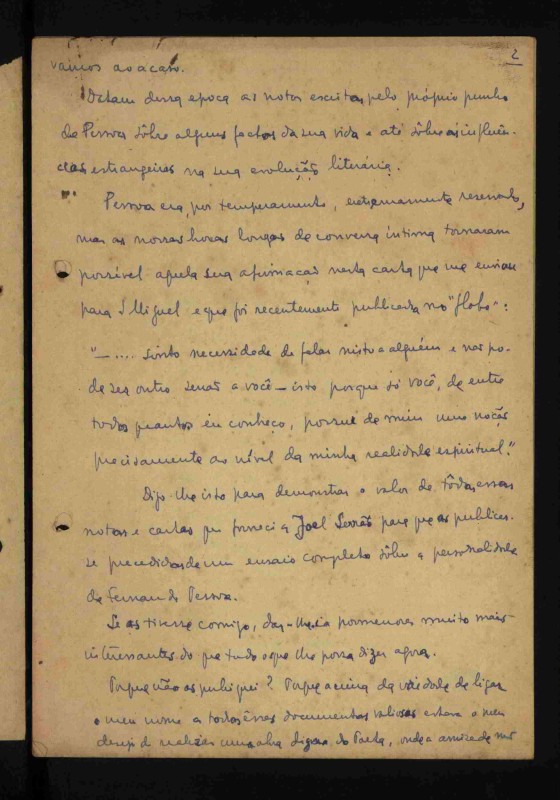 2
vamos ao acaso.
Datam dessa epoca as notas escritas pelo próprio punho
de Pessoa sôbre alguns factos da sua vida e até sôbre as influên-
cias estrangeiras na sua evolução literária.
Pessoa era, por temperamento, extremamente reservado,
mas as nossas horas longas de conversa íntima tornaram
possível aquela sua afirmação nesta carta que me enviou
para S. Miguel e que foi recentemente publicada no "Globo":
"— .... Sinto necessidade de falar nisto a alguém e não po-
de ser outro senão a você — isto porque só você, de entre
todos quantos eu conheço, possue de mim uma noção
precisamente ao nível da minha realidade espiritual."
Digo-lhe isto para demonstrar o valor de tôdas essas
notas e cartas que forneci a Joel Serrão para que as publicas-
se precedidas de um ensaio completo sôbre a personalidade
de Fernando Pessoa.
Se as tivesse comigo, dar-lhe-ia pormenores muito mais
interessantes do que tudo o que lhe possa dizer agora.
Porque não as publiquei? Porque acima da vaidade de ligar
o meu nome a todos êsses documentos valiosos estava o meu
desejo de realizar uma obra digna do Poeta, onde a amizade